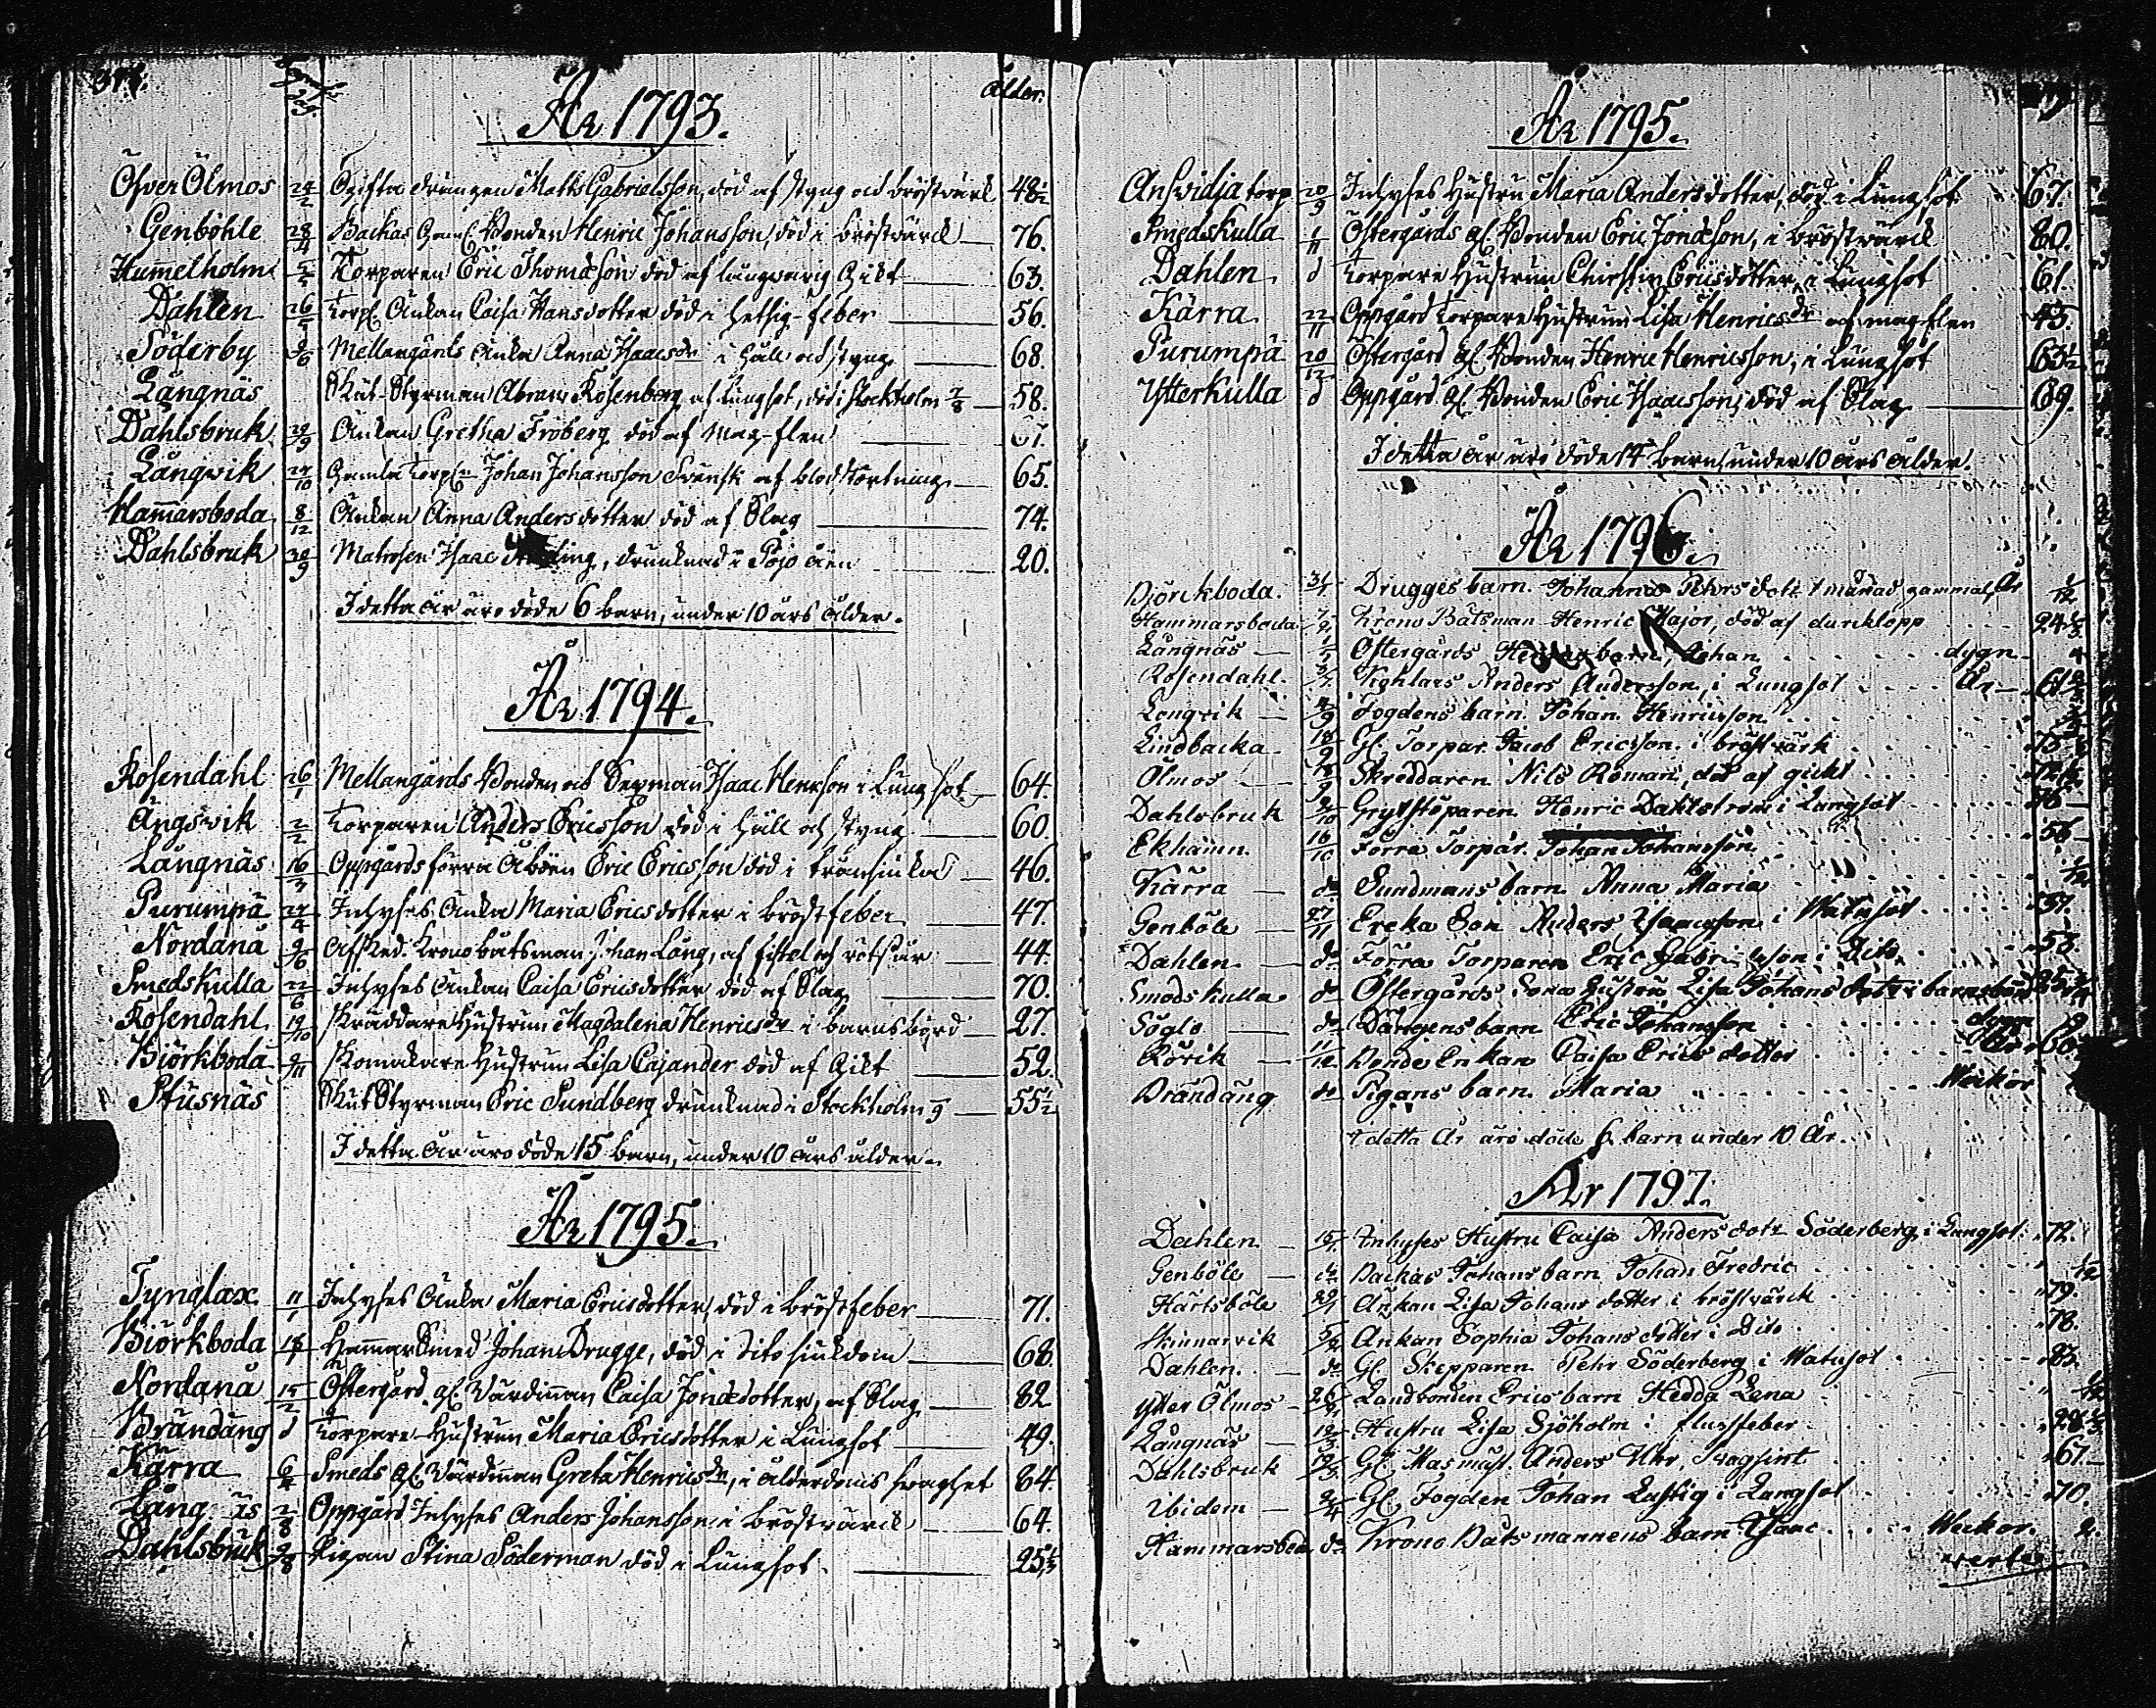 Ålder.
År 1793.
Öfver Ölmos 24/2 Ogifta drängen Matts Gabrielsson, död af styng och bröstvärk 48½
Genböhle 28/4 Backas Gaml. Bonden Henric Johansson, död i bröstvärck 76.
Hummelholm Torparen Eric Thomæson död af långvarig Gikt 63.
Dahlen 26/5 Torp. Änkan Caisa Hansdotter död i hetsig-feber 56.
Söderby Mellangårds Änka Anna Isaacsdr i håll och styng 68.
Långnäs Skut-Styrman Abram Rosenberg af lungsot, död i Stockholm 58.
Dahlsbruk 29/9 Änkan Gretha Fröberg död af mag-flen 67.
Långvik 24/10 Gamla Torp. Johan Johansson Svensk af blodstörtning 65.
Hammarsboda 8/12 Änkan Anna Andersdotter död af Slag 74.
Dahlsbruk 30/9 Matrosen Isaac drunknad i Pojo åen 20.
I detta år äro döde 6 barn, under 10 års ålder.
År 1794.
Rosendahl 26/1 Mellangårds Bonden och Sexman Isaac Henrsson i Lungsot 64.
Ängsvik 2/2 Torparen Anders Ericsson död i håll och styng 60.
Långnäs 16/3 Oppgårds förra Åboen Eric Ericsson död i 46.
Purumpä 24/4 Inhyses Änka Maria Ericsdotter i bröstfeber 47.
Nordanå 9/6 Afsked. Krono båtsman Johan Lång, af fistel och rötsår 44.
Smedskulla 22/6 Inhyses Änkan Caisa Ericsdotter död af Slag 70.
Rosendahl 19/10 Skräddare Hustrun Magdalena Henricsdr i barnsbörd 27.
Biörkboda 9/11 Skomakare Hustrun Lisa Cajander död af Gikt 52.
Stusnäs Skut Styrman Eric Sundberg drunknad i Stockholm 55½
I detta år äro döde 15 barn, under 10 års ålder.
År 1795.
Tynglax 11/1 Inhyses Änka Maria Ericsdotter, död i bröstfeber 71.
Biörkboda Hammarsmed Johan Drugge, död i dito siukdom 68.
Nordanå 15/2 Östergård gl. Värdinnan Caisa Jonædotter, af Slag 82
Brändäng d Torpare-Hustrun Maria Ericsdotter i Lungsot 49.
Kärra 6/4 Smeds gl. Värdinnan Greta Henricsdr, i ålderdoms svaghet 84.
Lång äs 2/8 Oppgård Inhyses Anders Johansson i bröstvärck 64.
Dahlsbruk 9/8 Pigan Stina Söderman död i Lungsot. 25⅓
År 1795.
Ansvidja torp 20/9 Inhyses Hustru Maria Andersdotter, död i Lungsot 67.
Smedskulla 1/11 Östergårds gl. Bonden Eric Jonæson, i bröstvärck 80.
Dahlen d Torpare Hustrun Christin Ericsdotter i Lungsot 61.
Kärra 22/11 Oppgård Torpare Hustrun Lisa Henricsdr af mag flen 45.
Purumpä 20/12 Östergård gl. Bonden Henric Henricsson, i Lungsot 63½
Ytterkulla d Oppgård gl. Bonden Eric Isaacsson, död af Slag 69.
I detta år äro döde 14 barn, under 10 års ålder.
År 1796.
Björckboda. Drugges barn Johanna Pehrs dotr 1 månad gammal, År 1/12
Hammarsboda Krono Båtsman Henric Major, död af durcklopp 24⅓
Långnäs Östergårds barn, Johan dygn 4
Rosendahl Nighlars Anders Andersson, i Lungsot År 61
Longvik Fogdens barn Johan Henricsson
Lindbacka 18/9 Gl. Torpar. Jacob Ericsson i bröstvärk 75
Ölmos Skreddaren Nils Roman, död af gickt 72
Dahlsbruk Grytstöparen Henric Dahlström i Lungsot 46
Ekhamn. 16/10 Förra Torpar. Johan Johansson 56
Kärra do Sundmans barn Anna Maria 1/12
Genböle 27/11 Ereka Son Anders Isaacsson i Watusot 37.
Dahlen do Förra Torparen Eric Gabrielsson i Dito 53.
Smedskulla do Östergårds Sona Hustru Lisa Johansdotr i barnsbörd 25
Söglö do Drängens barn Eric Johansson dygn 9
Rövik 11/12 Bonde Enkan Caisa Erics dotter År 60
Brändäng do Pigans barn Maria Weckor
I detta År äro döde 6 barn under 10 År.
År 1797.
Dahlen 15/1 Inhyses Hustru Caisa Anders dotr Söderberg i Lungsot 72.
Genböle do Backas Johans barn Johan Fredric 1/12
Härtsböle 29/1 Änkan Lisa Johans dotter i bröstvärck 79.
Skinnarvik 5/2 Ankan Sophia Johans dotter i Dito 78.
Dahlen do Gl. Skepparen Pehr Söderberg i Watusot 83.
Ytter Ölmos 26/2 Landbonden Erics barn Hedda Lena
Långnäs 12/3 Hustru Lisa Sjöholm i flussfeber 28
Dahlsbruk 19/3 Gl. Masmäst. Anders Uhr, Svagsint 67.
ibidem 2/4 Gl. Fogden Johan Lustig i Lungsot 70.
Hammarsboda do Krono Båtsmannens barn Isaac Weckor. 2.
verte